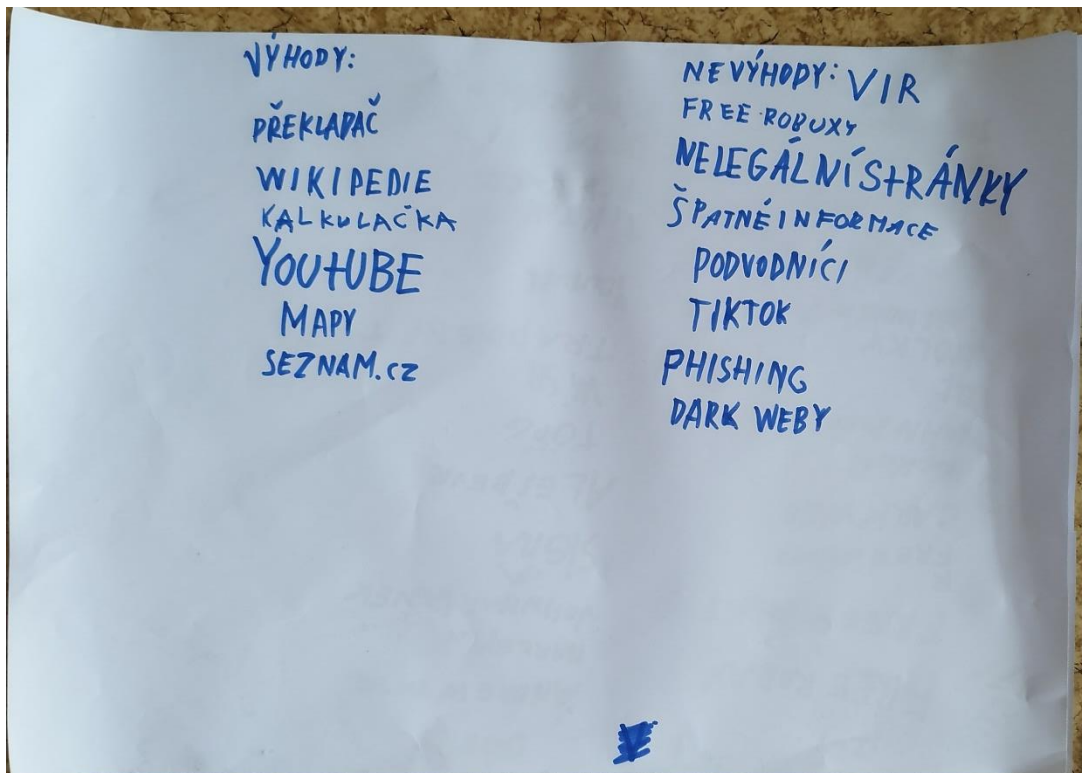 VÝHODY:
PŘEKLADAČ
WIKIPEDIE
KALKULAČKA
YOUTUBE
MAPY
SEZNAM.CZ
NEVÝHODY: VIR
FREE ROBUXY
NELEGÁLNÍ STRÁNKY
ŠPATNÉ INFORMACE
PODVODNÍCI
TIKTOK
PHISHING
DARK WEBY